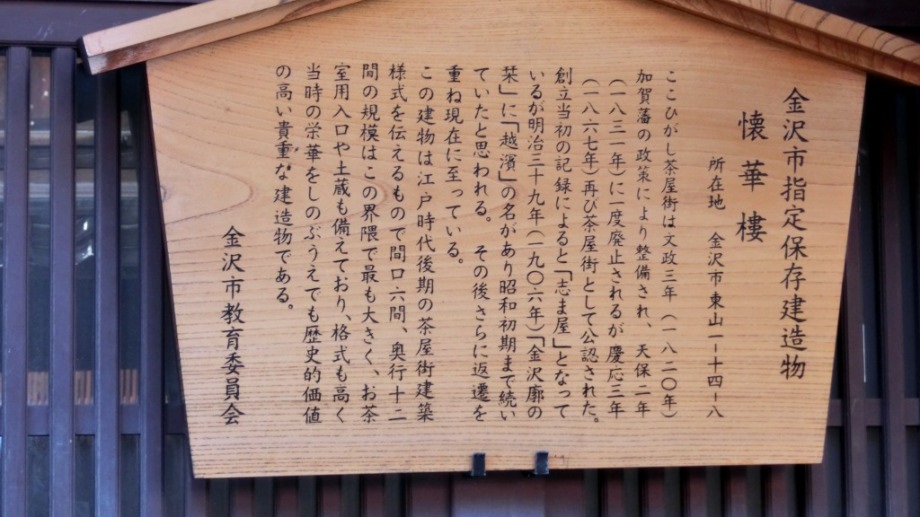 金沢市指定保存建造物
懐華樓
所在地　金沢市東山一ー十四ー八
ここひがし茶屋街は文政三年（一八二〇年）
加賀藩の政策により整備され、天保二年
（一八三一年）に一度廃止されるが慶応三年
（一八六七年）再び茶屋街として公認された。
創立当初の記録によると「志ま屋」となって
いるが明治三十九年（一九〇六年）「金沢廓の
栞」に「越濱」の名があり昭和初期まで続い
ていたと思われる。　その後さらに返遷を
重ね現在に至っている。
この建物は江戸時代後期の茶屋街建築
様式を伝えるもので間口六間、奥行十二
間の規模はこの界隈で最も大きく、お茶
室用入口や土蔵も備えており、格式も高く
当時の栄華をしのぶうえでも歴史的価値
の高い貴重な建造物である。
金沢市教育委員会